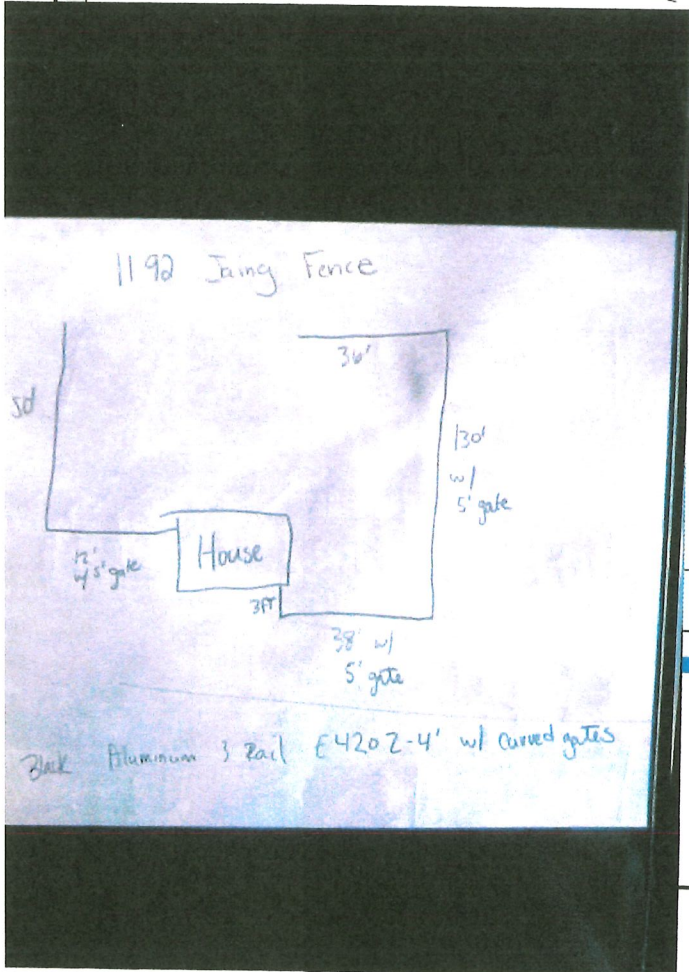 1192 Jaing Fence
36'
50'
130'
w/
5' gate
House
12'
w/ 5' gate
3FT
38' w/
5' gate
Black Aluminum 3 Rail E4202-4' w/ curved gates